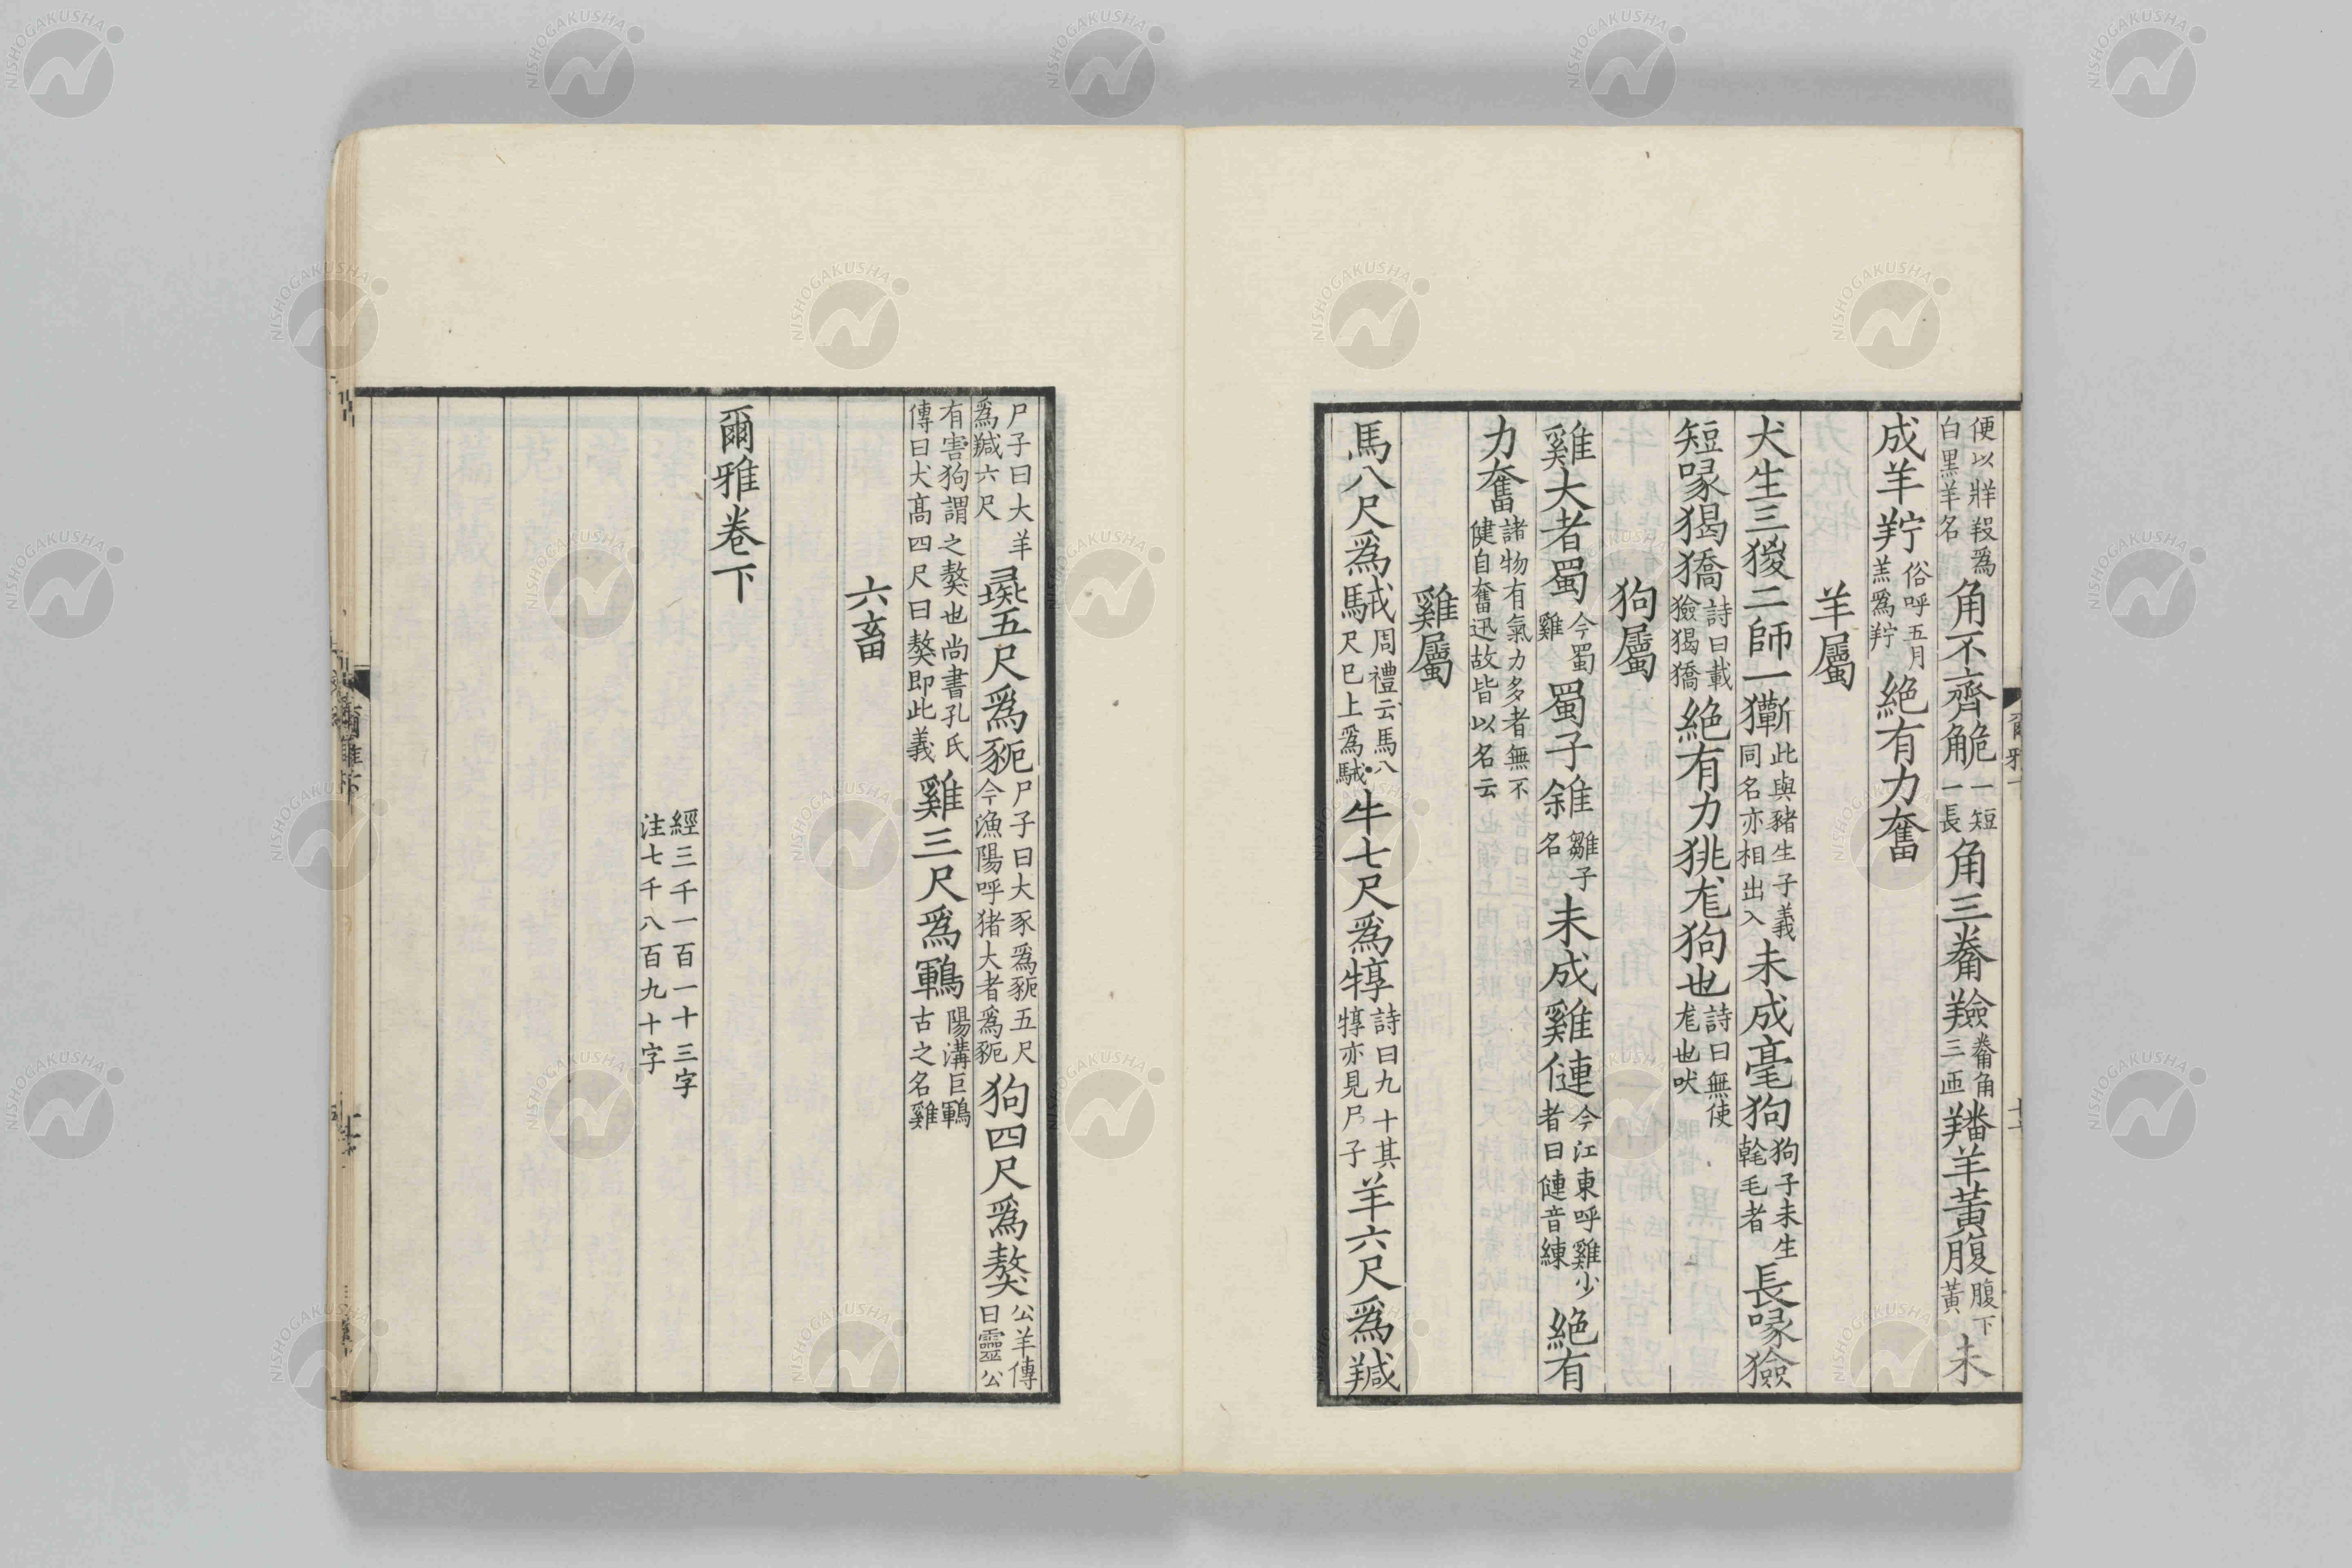 便以牂羖爲白黑羊名角不齊觤一短一長角三觠羷觠角三匝羳羊黃腹腹下黃未
成羊羜俗呼五月羔爲羜絕有力奮
羊屬
犬生三猣二師一玂此與豬生子義同名亦相出入未成毫狗狗子未生乾毛者長喙獫
短喙猲獢詩曰載獫猲獢絕有力狣尨狗也詩曰無使尨也吠
狗屬
雞大者蜀今蜀雞蜀子雓雛子名未成雞僆今江東呼雞少者曰僆音練絕有
力奮諸物有氣力多者無不健自奮迅故皆以名云
雞屬
馬八尺爲駥周禮云馬八尺已上爲駥牛七尺爲犉詩曰九十其犉亦見尸子羊六尺爲羬
尸子曰大羊爲羬六尺彘五尺爲豟尸子曰大豕爲豟五尺今漁陽呼猪大者爲豟狗四尺爲獒公羊傳曰靈公
有害狗謂之獒也尚書孔氏傳曰犬高四尺曰獒即此義雞三尺爲鶤陽溝巨鶤古之名雞
六畜
爾雅卷下
經三千一百一十三字
注七千八百九十字
NISHOGAKUSHA